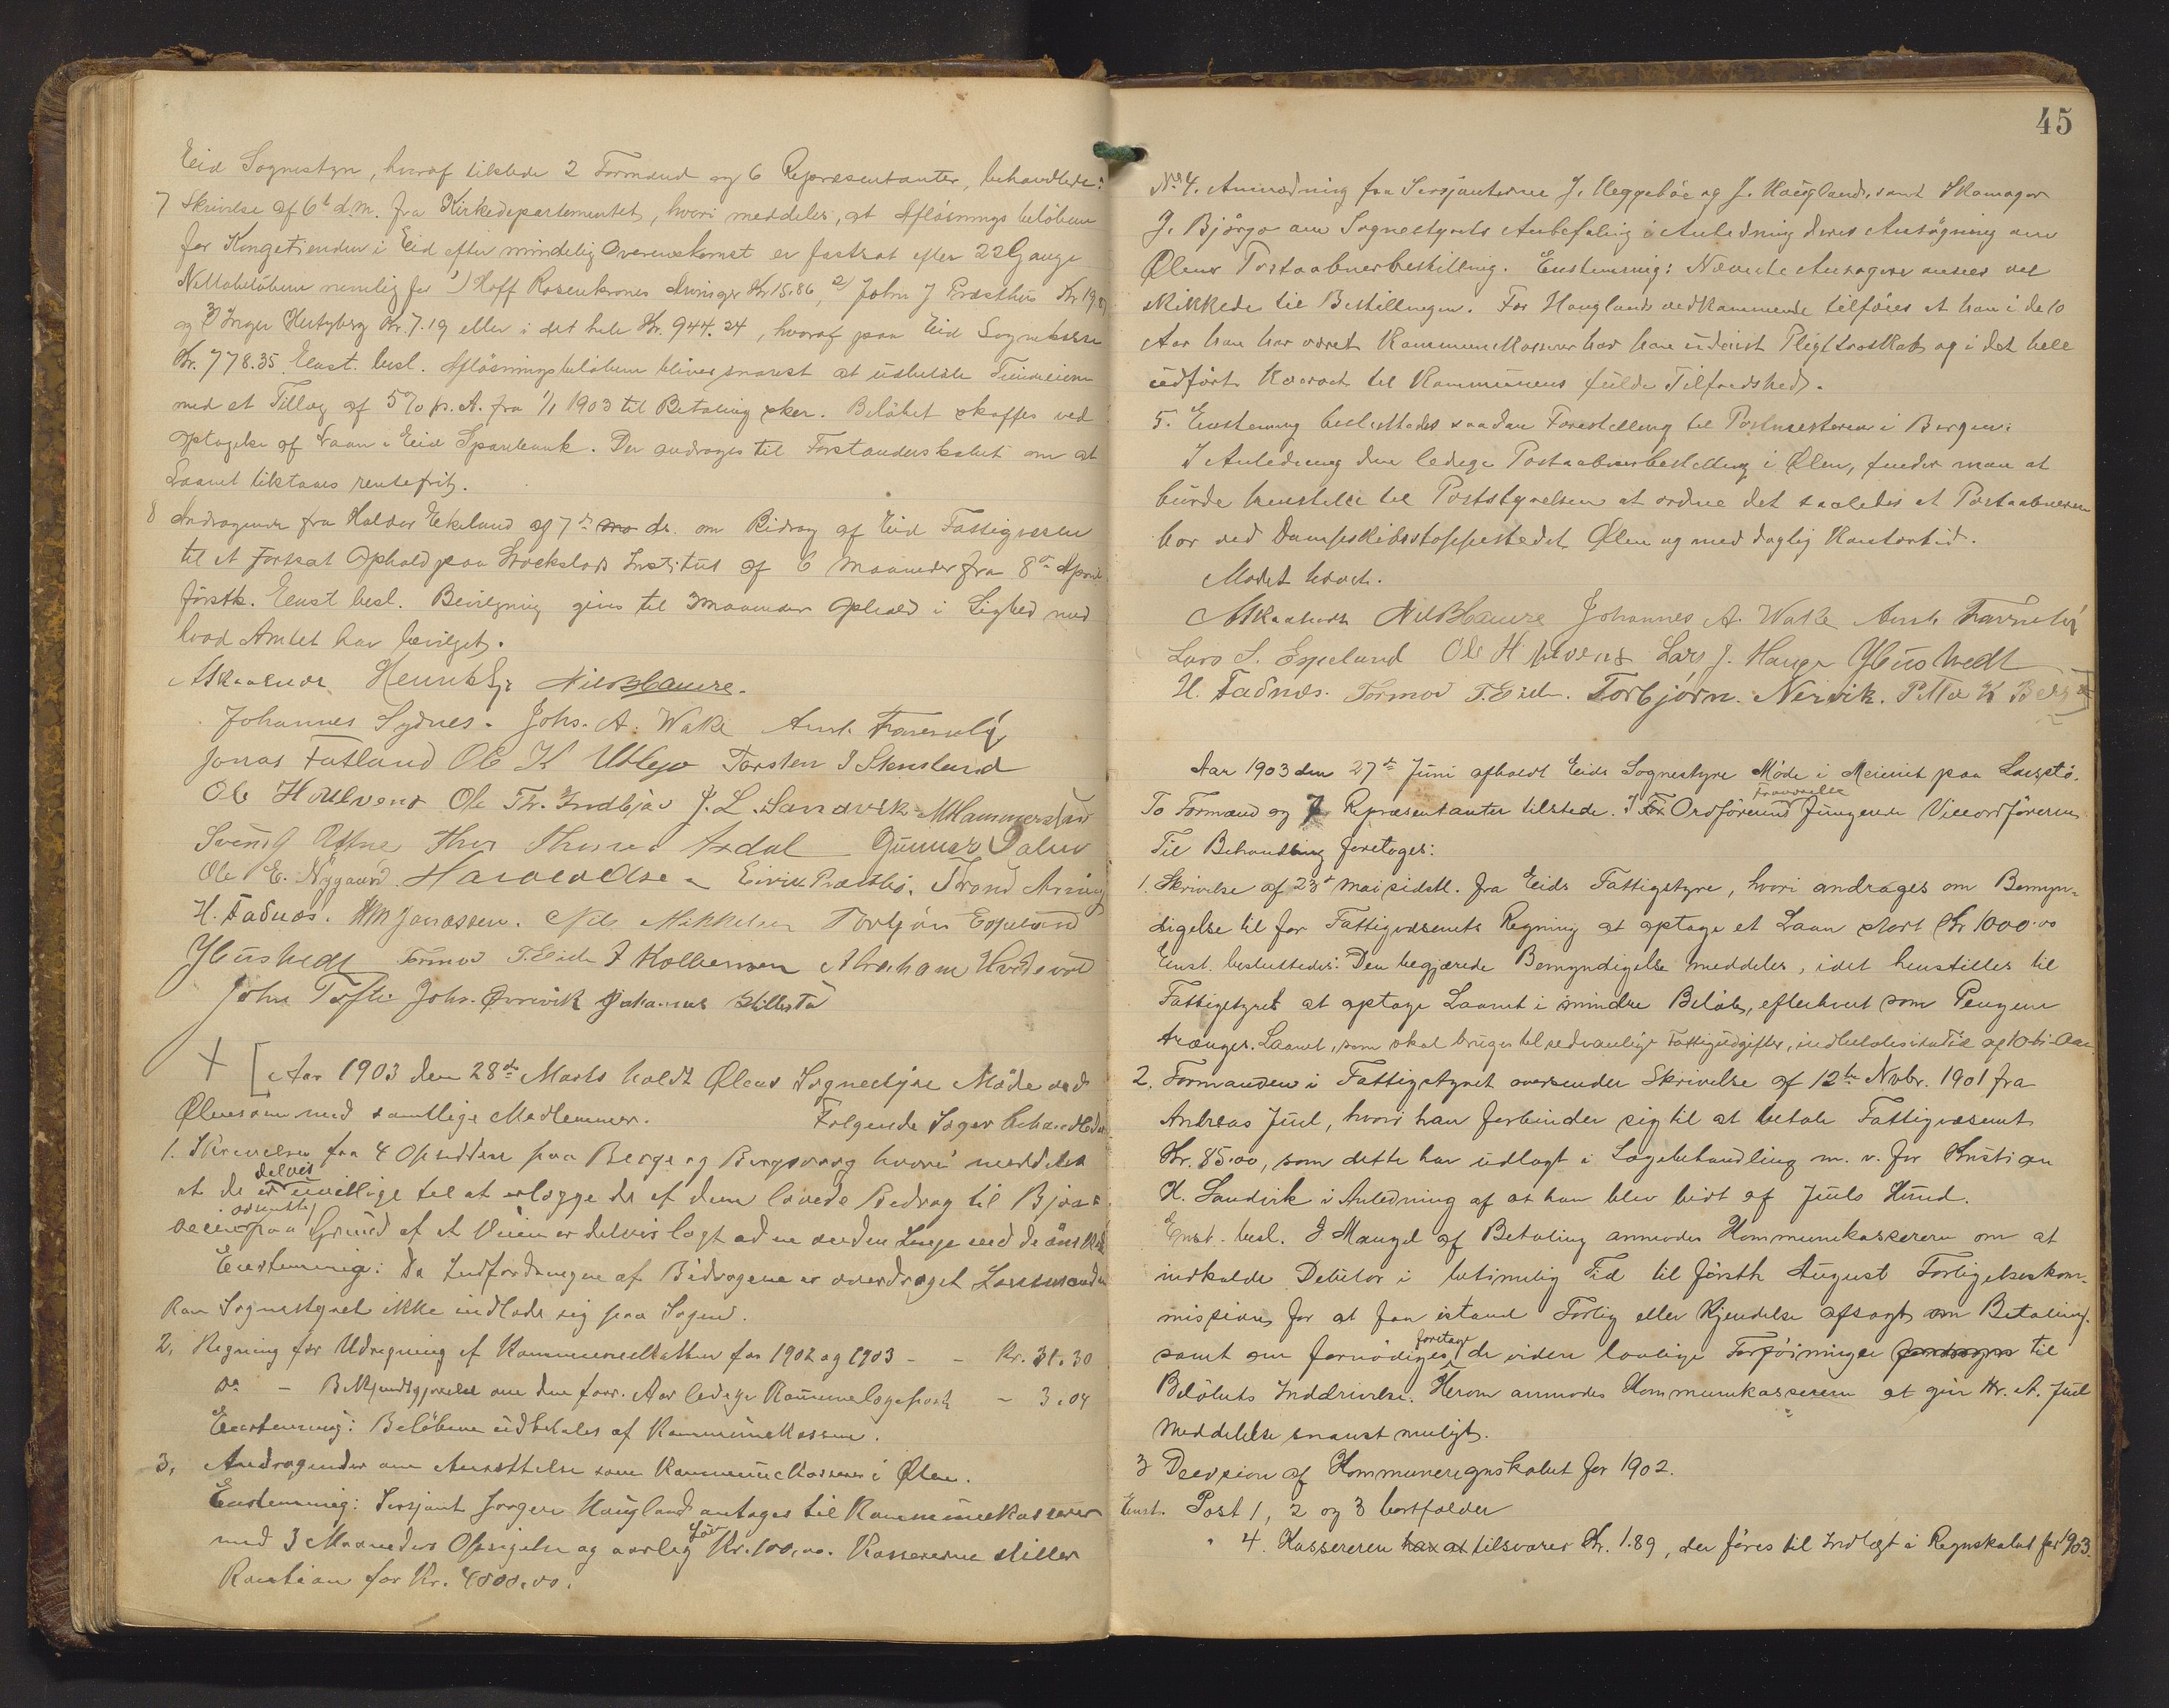 Eid Sognestyre, hvoraf tilstede 2 Formænd og 6 Repræsentanter, behandlede:
7 Skrivelse af 6te d.M. fra Kirkedepartementet, hvori meddeles, at Afløsningsbeløbene
for Kongetienden i Eid efter mindelig Overenskomst er fastsat efter 22 Gange
Nettobeløbene nemlig for 1) Hoff Rosenkrones Arvinger Kr 15.86, 2) John J Præsthus Kr 19.87
og 3) Inger Hertzberg Kr. 7.19 eller i det hele Kr. 944.24, hvoraf paa Eid Sognekasse
Kr. 778.35. Enst. besl. Afløsningsbeløbene bliver snarest at udbetale Tiendeeierne
med et Tillæg af 5% p.A. fra 1/1 1903 til Betaling sker. Beløbet skaffes ved
Optagelse af Laan i Eid Sparebank. Der andrages til Formandskabet om at
Laanet tilstaaes rentefrit.
8 Andragende fra Halvor Ekeland af 7de ds. om Bidrag af Eid Fattigvæsen
til et fortsat Ophold paa Institut af 6 Maaneder fra 8de April
førstk. Enst besl. Bevilgning gives til 3 Maaneders Ophold i Lighed med
hvad Amtet har bevilget.
Nils Haure.
Johannes Sydnes. Johs. A. Wake
Jonas Fatland Ole K Utbjo Torsten J Stensland
Ole H Ole Th. Indbjør J. L. Sandvik M Hammerstad
Svend Thor Axdal Gunnar Dalen
Ole E. Nygaard. Eirik Præsthus. Trond
H. Fadnæs. HM Jonassen. Nils Mikkelsen Torbjørn Espeland
Tormod T. Eide J Kolbensen Abraham
John Tofte Johs. Qvervik Johannes
+ [Aar 1903 den 28de Marts holdt Ølens Sognestyre Møde ved
Ølensøen med samtlige Medlemmer. Følgende Sager behandledes:
1. Skrivelse fra 4 Opsiddere paa Berge og Bergsvaag hvori meddeles
at de er delvis uvillige til at erlægge de af dem lovede Bidrag til
paa Grund af at Veien er delvis lagt ad en anden Linje end de ønskede
Enstemmig: Da Indfordringen af Bidragene er overdraget Lensmanden
kan Sognestyret ikke indlade sig paa Sagen.
2. Regning for Udregning af Kommuneskatten for 1902 og 1903 - - Kr. 31.30
do - Bekjendtgjørelse om den forr. Aar ledige Kommunelægepost - 3.04
Enstemmig: Beløbene udbetales af Kommunekassen.
3. Andragender om Ansættelse som Kommunekasserer i Ølen.
Enstemmig: Sersjant Jørgen Haugland antages til Kommunekasserer
med 3 Maaneders Opsigelse og aarlig Løn Kr. 100.00. Kassereren stiller
Kaution for Kr. 4000.00.
45
No 4. Anmodning fra Sersjanterne J. Heggebøe og J. Haugland, samt Skomager
G. Bjørgo om Sognestyrets Anbefaling i Anledning deres Ansøgning om
Ølens Postaabnerbestilling. Enstemmig: Nævnte Ansøgere ansees vel
skikkede til Bestillingen. For Hauglands vedkommende tilføies at han i de 10
Aar han har været Kommunekasserer har han udvist Pligttroskab og i det hele
udført Hvervet til Kommunens fulde Tilfredshed.
5. Enstemmig besluttedes saadan Forestilling til Postmesteren i Bergen:
I Anledning den ledige Postaabnerbestilling i Ølen, finder man at
burde henstille til Poststyrelsen at ordne det saaledes at Postaabneren
bor ved Dampskibsstoppestedet Ølen og med daglig Kontortid.
Mødet hævet.
Nils Haure Johannes A. Wake
Lars S. Espeland Ole H Lars J. Hauge
H. Fadnæs. Tormod T. Eide. Torbjørn Nervik. Petter K Berge]
Aar 1903 den 27de Juni afholdt Eids Sognestyre Møde i Meieriet paa
To Formænd og 7 Repræsentanter tilstede. I Ordførerens fraværelse fungerede Viceordføreren
Til Behandling foretoges:
1. Skrivelse af 23de Mai sidstl. fra Eids Fattigstyre, hvori andrages om Bemyn-
digelse til for Fattigvæsenets Regning at optage et Laan stort Kr 1000.00
Enst. besluttedes: Den begjærede Bemyndigelse meddeles, idet henstilles til
Fattigstyret at optage Laanet i mindre Beløb, efterhvert som Pengene
trænges. Laanet, som skal bruges til sedvanlige Fattigudgifter, indbetales i en Tid af 10-ti-Aar.
2. Formanden i Fattigstyret oversender Skrivelse af 12te Novbr. 1901 fra
Andreas Juul, hvori han forbinder sig til at betale Fattigvæsenet
Kr. 85.00, som dette har udlagt i Lægebehandling m. v. for Kristian
K. Sandvik i Anledning af at han blev bidt af Juuls Hund.
Enst. besl. I Mangel af Betaling anmodes Kommunekassereren om at
indkalde Debitor i betimelig Tid til førstk August Forligelseskom-
mission for at faa istand Forlig eller Kjendelse afsagt om Betaling,
samt om fornødiges foretage de videre lovlige Forføininger til
Beløbets Inddrivelse. Herom anmodes Kommunekassereren at give Hr. A. Juul
Meddelelse snarest muligt.
3 Decision af Kommuneregnskabet for 1902.
Enst. Post 1, 2 og 3 bortfalder
" 4. Kassereren har at tilsvarer Kr. 1.89, der føres til Indtægt i Regnskabet for 1903.